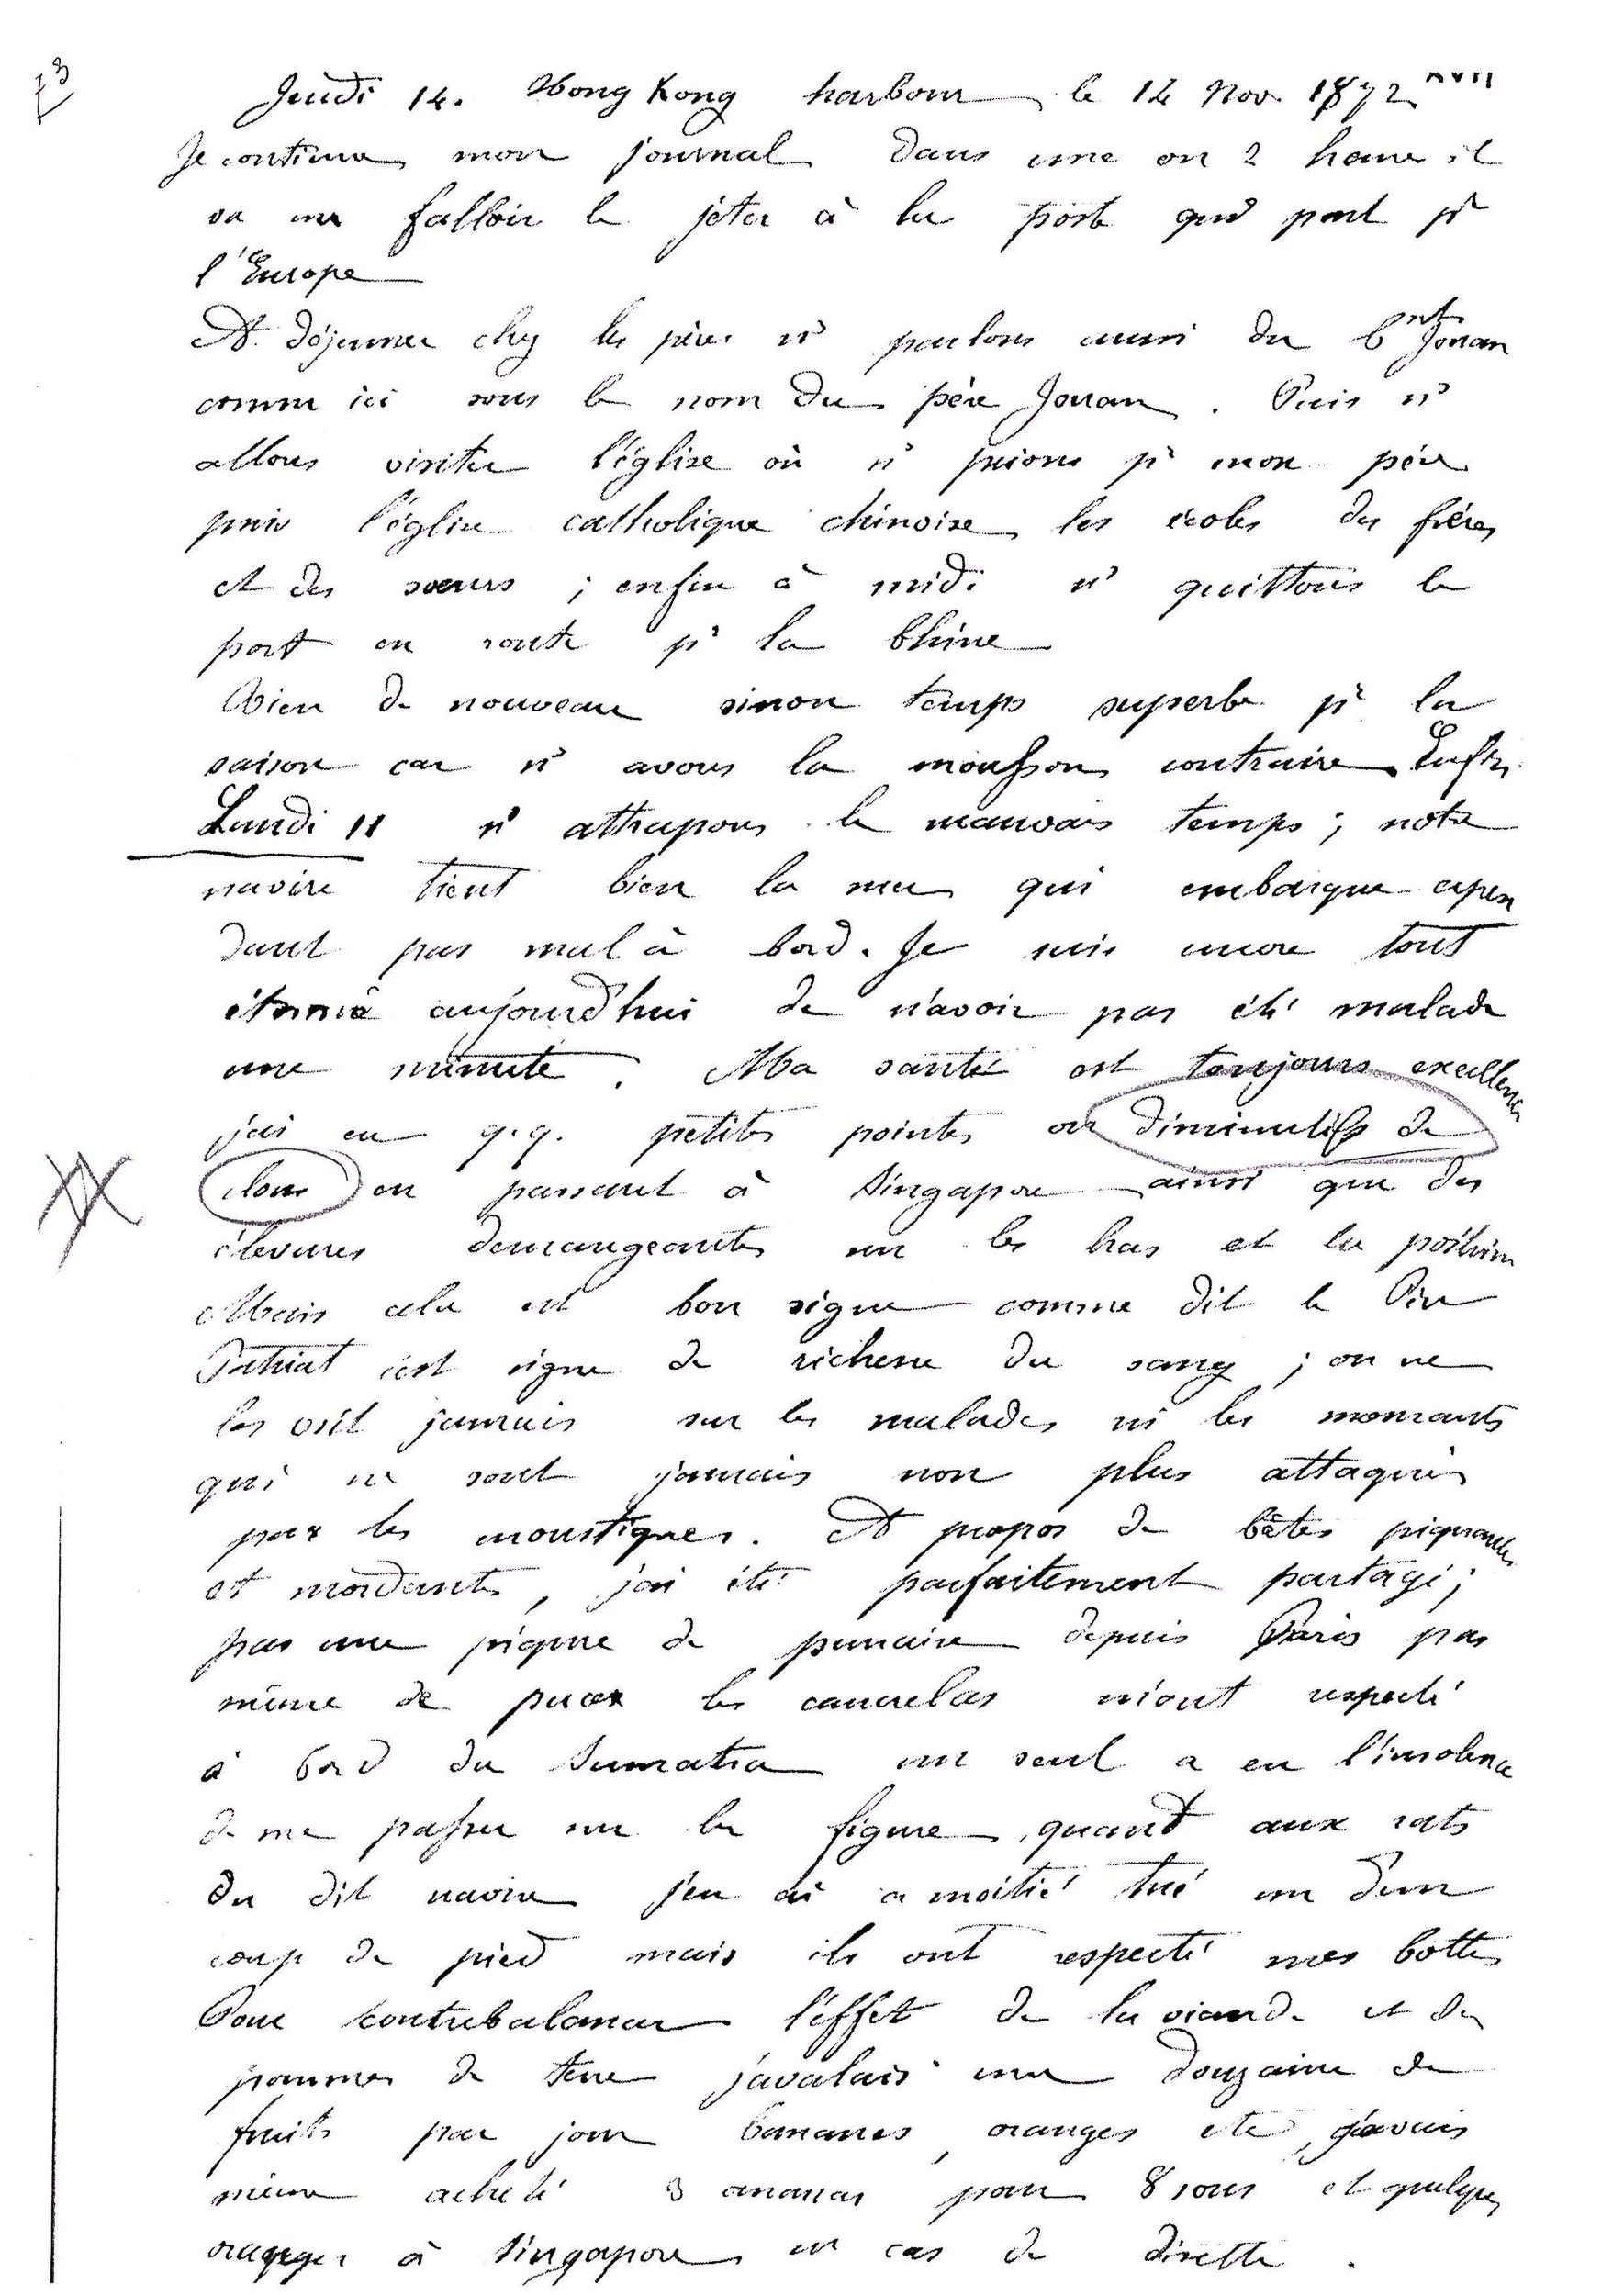 Jeudi 14. Hong Kong harbour le 14 Nov. 1872 XVII
Je continue mon journal Dans une ou 2 heures il
va me falloir le jeter à la poste qui part pr
l'Europe
A déjeuner chez les pères ns parlons aussi du Cnt Jouan
connu ici sous le nom du père Jouan. Puis ns
allons visiter l'église où ns prions pr mon père
puis l'église catholique chinoise, les écoles des frères
et des soeurs ; enfin à midi ns quittons le
port en route pr la Chine
Rien de nouveau sinon temps superbe pr la
saison car ns avons la mousson contraire. Enfin
Lundi 11 ns attrapons le mauvais temps ; notre
navire tient bien la mer qui embarque cepen
dant pas mal à bord. Je suis encore tout
étonné aujourd'hui de n'avoir pas été malade
une minute. Ma santé est toujours excellente
j'ai eu q.q. petites pointes ou diminutifs de
clous en passant à Singapore ainsi que des
élevures démangeantes sur les bras et la poitrine
Mais cela est bon signe comme dit le Père
Patriat c'est signe de richesse du sang ; on ne
les voit jamais sur les malades ni les mourants
qui ne sont jamais non plus attaqués
par les moustiques. A propos de bêtes piquantes
et mordantes, j'ai été parfaitement partagé ;
pas une piqure de punaise depuis Paris pas
même de puces les cancrelas m'ont respecté
à bord du Sumatra un seul a eu l'insolence
de me passer sur la figure, quant aux rats
du dit navire j'en ai a moitié tué un d'un
coup de pied mais ils ont respecté mes bottes
Pour contrebalancer l'effet de la viande et des
pommes de terre j'avalais une douzaine de
fruits par jour bananes, oranges etc, j'avais
même acheté 3 ananas pour 8 sous et quelques
oranges à Singapore en cas de disette.